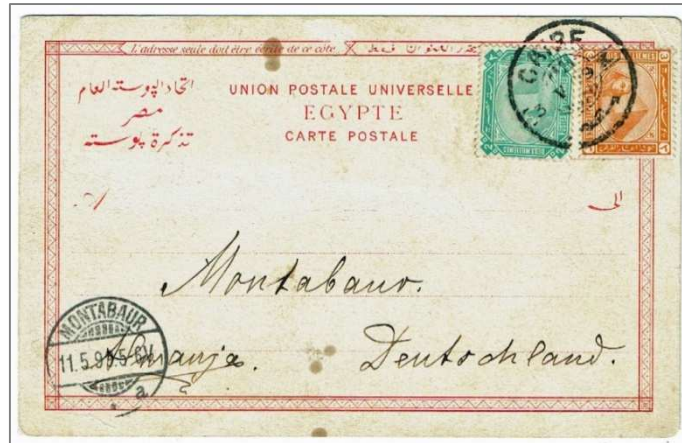 L'adresse seule doit être écrite de ce côté.
اتحاد البوستة العام
مصر
تذكرة بوسته
UNION POSTALE UNIVERSELLE
EGYPTE
CARTE POSTALE
CAIRE
الى
Montabaur.
Deutschland.
MONTABAUR
11.5.9